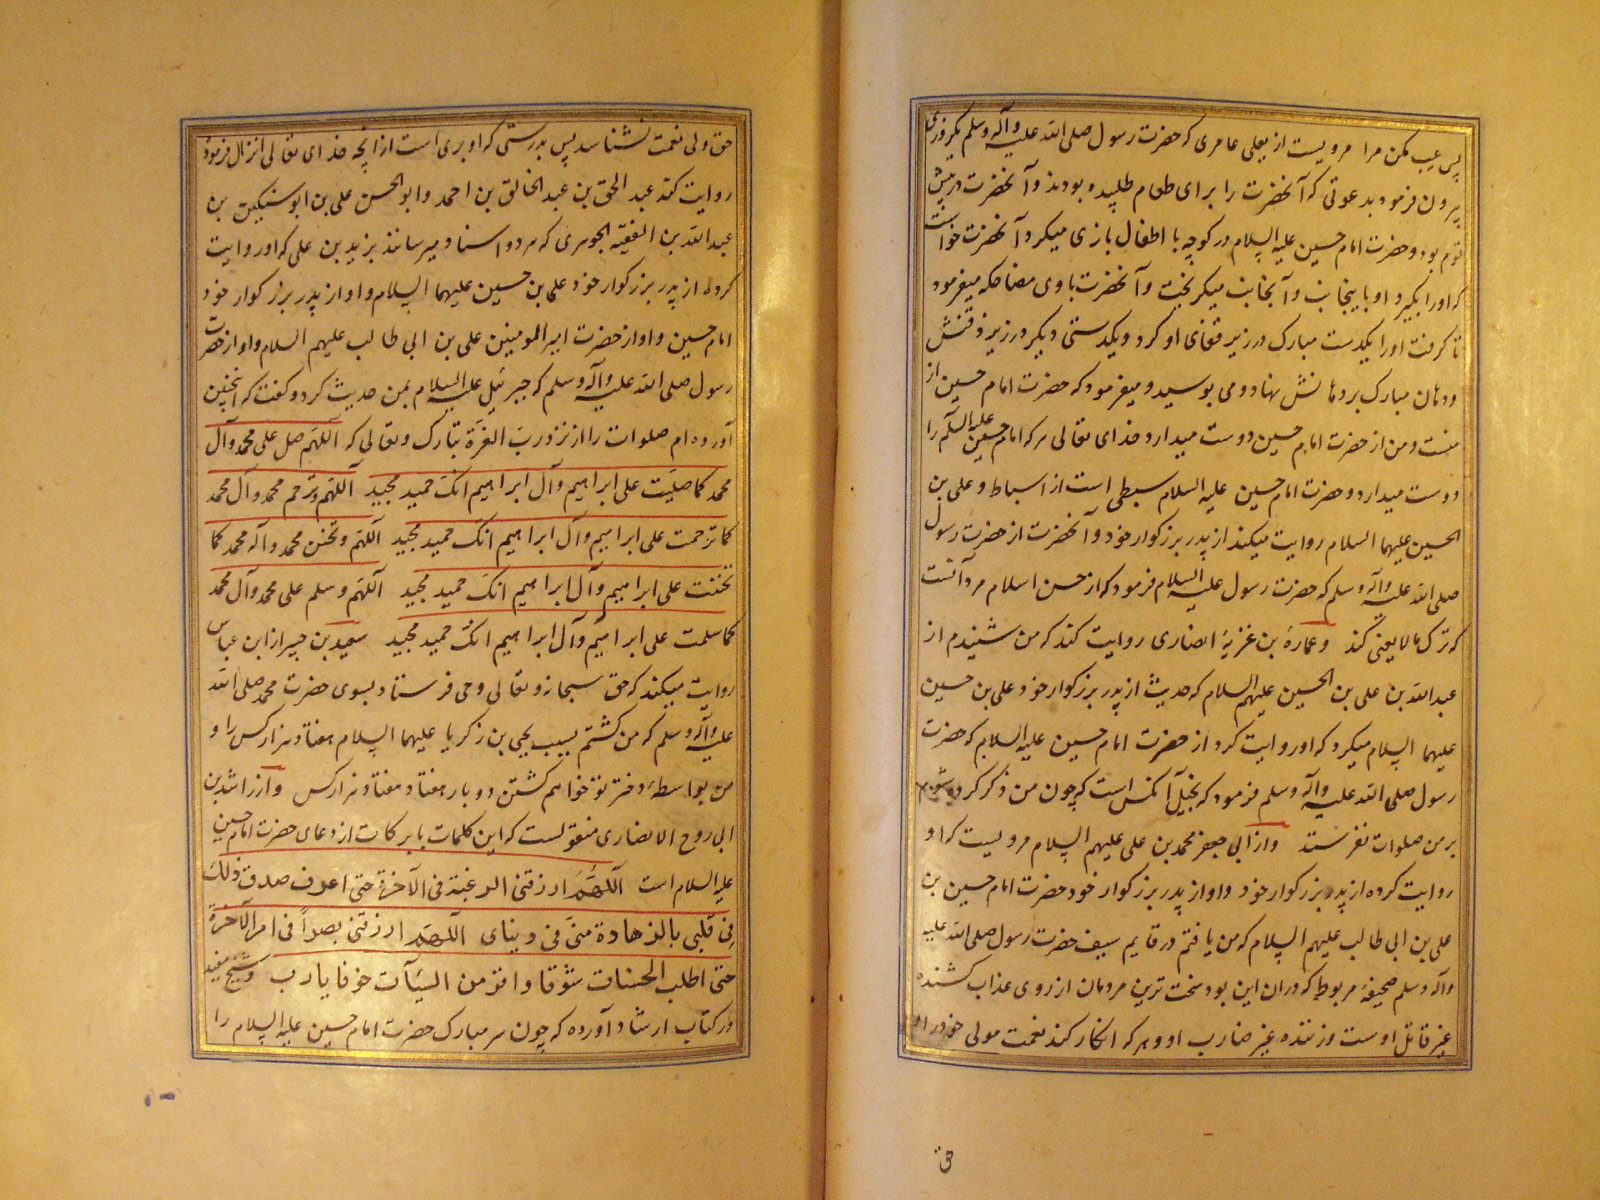 پس عیب مکن مرا مرویست از یعلی عامری که حضرت رسول صلی الله علیه وآله وسلم یکروزی
بیرون فرمود بدعوتی که آنحضرت را برای طعام طلبیده بودند وآنحضرت در پیش
قوم بود و حضرت امام حسین علیه السلام در کوچه با اطفال بازی میکرد آنحضرت خواست
که او را بگیرد او باینجانب وآنجانب میکریخت وآنحضرت با وی مضاحکه میفرمود
تا کرفت او را یکدست مبارک در زیر قفای او کرد ویکدستی دیکر در زیر ذقنش
ودهان مبارک بر دهانش نهاد ومی بوسید ومیفرمود که حضرت امام حسین از
منست ومن از حضرت امام حسین دوست میدارد خدای تعالی هر که امام حسین علیه السلام را
دوست میدارد وحضرت امام حسین علیه السلام سبطی است از اسباط وعلی بن
الحسین علیهما السلام روایت میکند از پدر بزرکوار خود وآنحضرت از حضرت رسول
صلی الله علیه وآله وسلم که حضرت رسول علیه السلام فرمود که از حسن اسلام مرد آنست
که ترک مالایعنی کند وعمارة بن غزیه انصاری روایت کند که من شنیدم از
عبدالله بن علی بن الحسین علیهم السلام که حدیث از پدر بزرکوار خود علی بن حسین
علیهما السلام میکرد که او روایت کرد از حضرت امام حسین علیه السلام که حضرت
رسول صلی الله علیه وآله وسلم فرمود که بخیل آنکس است که چون من ذکر کرده شوم
بر من صلوات نفرستد واز ابی جعفر محمد بن علی علیهم السلام مرویست که او
روایت کرده از پدر بزرکوار خود واو از پدر بزرکوار خود حضرت امام حسین بن
علی بن ابی طالب علیهم السلام که من یافتم در قایم سیف حضرت رسول صلی الله علیه
وآله وسلم صحیفهٔ مربوط که در ان این بود سخت ترین مردمان از روی عذاب کشنده
غیر قاتل اوست وزننده غیر ضارب او وهر که انکار کند نعمت مولی خود را او
حق ولی نعمت نشناسد پس بدرستی که او بری است از انچه خدای تعالی انزال فرمود
روایت کند عبدالحق بن عبدالخالق بن احمد وابوالحسن علی بن ابو بن
عبدالله بن الفقیه الجوسری که هر دو اسناد میرسانند بزید بن علی که او روایت
کرده از پدر بزرکوار خود علی بن حسین علیهما السلام واو از پدر بزرکوار خود
امام حسین واو از حضرت امیرالمومنین علی بن ابی طالب علیهم السلام واو از حضرت
رسول صلی الله علیه وآله وسلم که جبرئیل علیه السلام بمن حدیث کرد وکفت که اینچنین
آورده ام صلوات را از نزد رب العزّة تبارک وتعالی که اللهم صل علی محمد وآل
محمد کما صلیت علی ابراهیم وآل ابراهیم انک حمید مجید اللهم وترحم محمد وآل محمد
کما ترحمت علی ابراهیم وآل ابراهیم انک حمید مجید اللهم وتحنن محمد وآله محمد کما
تحننت علی ابراهیم وآل ابراهیم انک حمید مجید اللهم وسلم علی محمد وآل محمد
کما سلمت علی ابراهیم وآل ابراهیم انک حمید مجید سعید بن جبیر از ابن عباس
روایت میکند که حق سبحانه وتعالی وحی فرستاد بسوی حضرت محمد صلی الله
علیه وآله وسلم که من کشتم بسبب یحیی بن زکریا علیهما السلام هفتاد هزار کس را و
من بواسطهٔ دختر تو خواهم کشتن دو بار هفتاد هفتاد هزار کس واز راشد بن
ابی روح الانصاری منقولست که این کلمات بابرکات از دعای حضرت امام حسین
علیه السلام است اللهم ارزقنی الرغبة فی الآخرة حتی اعرف صدق ذلک
فی قلبی بالزهادة منی فی دنیای اللهم ارزقنی بصراً فی امر الآخرة
حتی اطلب الحسنات شوقا وافر من السیآت خوفا یارب وشیخ مفید
در کتاب ارشاد آورده که چون سر مبارک حضرت امام حسین علیه السلام را